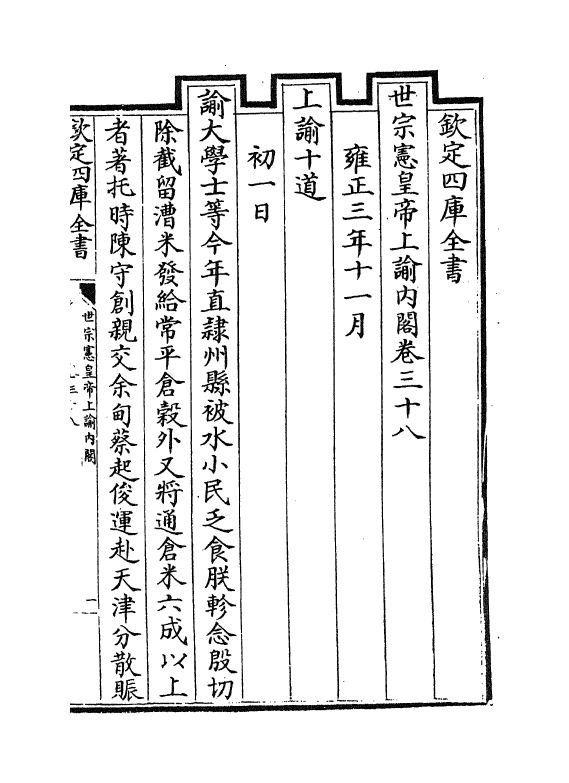 欽定四庫全書
世宗憲皇帝上諭內閣卷三十八
雍正三年十一月
上諭十道
初一日
諭大學士等今年直隷州縣被水小民乏食朕軫念殷切
除截留漕米發給常平倉穀外又將通倉米六成以上
者著托時陳守創親交余甸蔡起俊運赴天津分散賑
欽定四庫全書
世宗憲皇帝上諭內閣
一